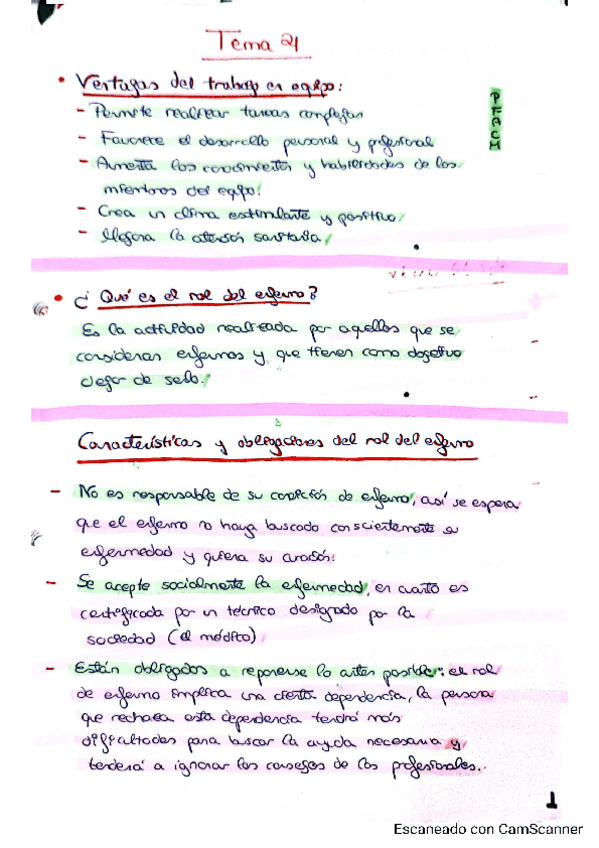 Tema 21
• Ventajas del trabajo en equipo:
- Permite realizar tareas complejas
- Favorece el desarrollo personal y profesional
- Aumenta los conocimientos y habilidades de los
miembros del equipo.
- Crea un clima estimulante y positivo
- Mejora la atención sanitaria
PFACM
• ¿Qué es el rol del enfermo?
Es la actividad realizada por aquellos que se
consideran enfermos y que tienen como objetivo
dejar de serlo.
Características y obligaciones del rol del enfermo
- No es responsable de su condición de enfermo, así se espera
que el enfermo no haya buscado conscientemente su
enfermedad y quiera su curación.
- Se acepte socialmente la enfermedad, en cuanto es
certificada por un técnico designado por la
sociedad (el médico)
- Están obligados a reponerse lo antes posible: el rol
de enfermo implica una cierta dependencia, la persona
que rechaza esta dependencia tendrá más
dificultades para buscar la ayuda necesaria y
tenderá a ignorar los consejos de los profesionales.
1
Escaneado con CamScanner